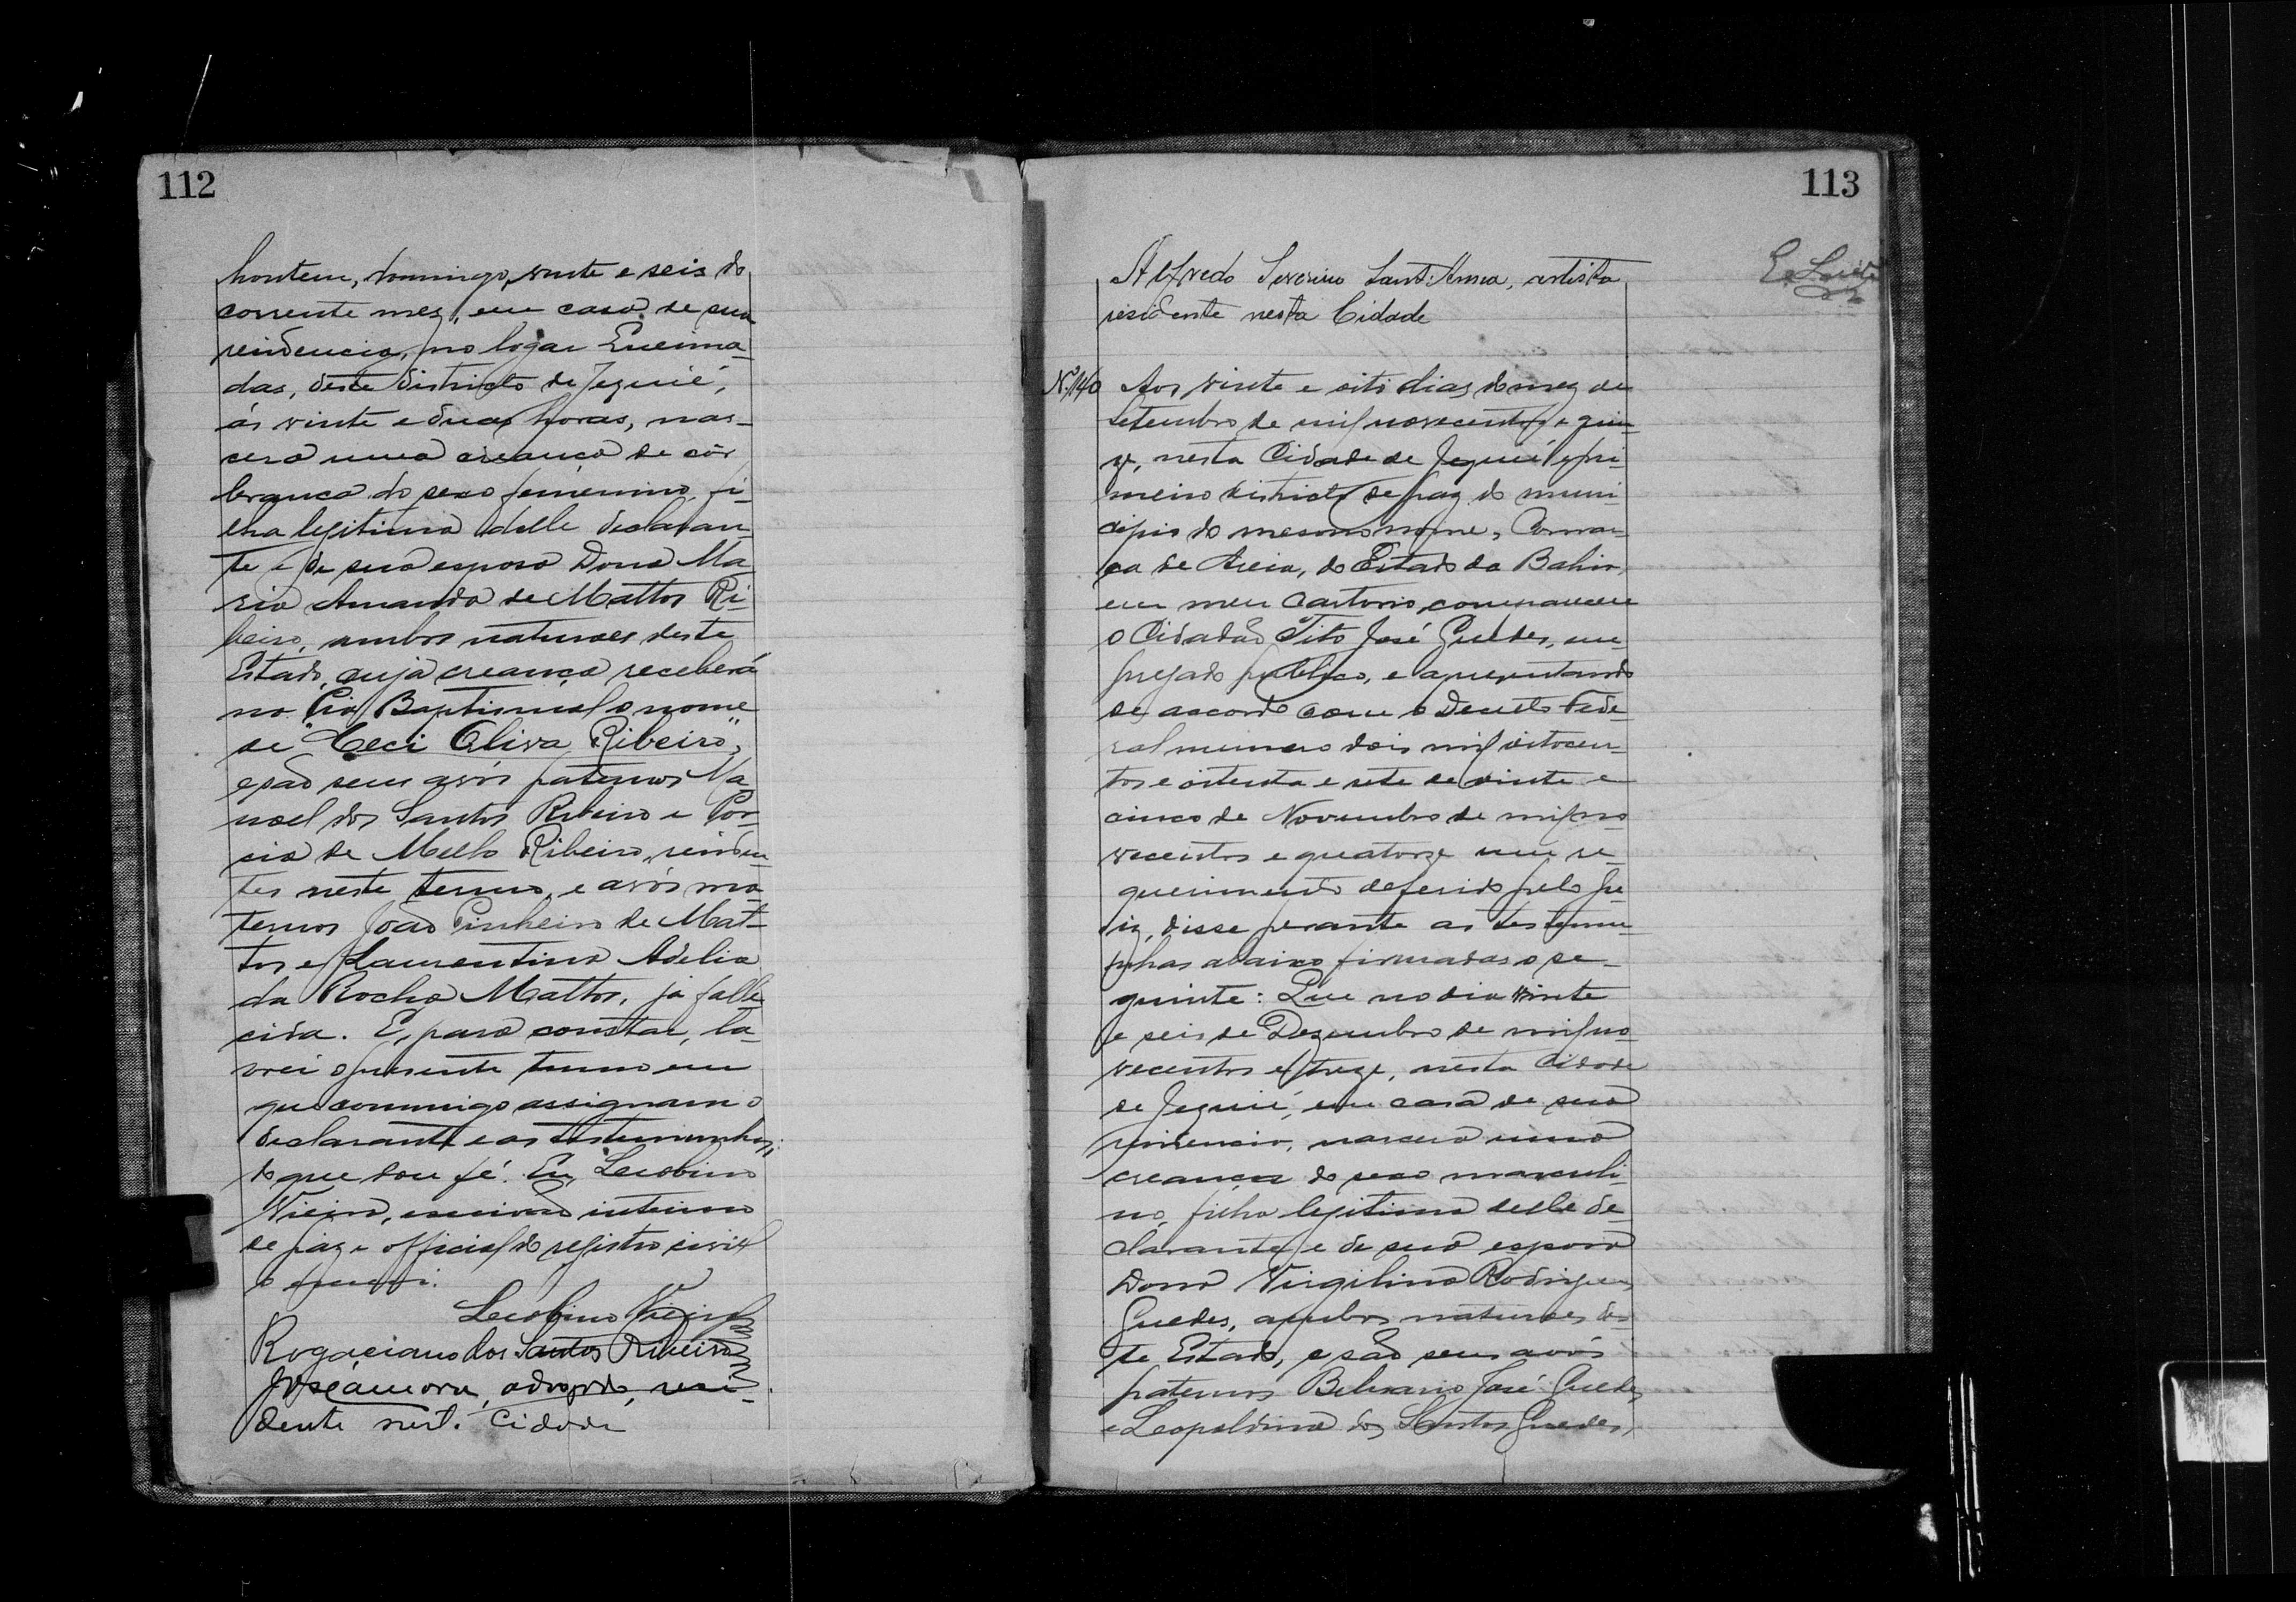 112
hontem, domingo, vinte e seis do
corrente mez, em casa de sua
residencia, no logar Queima-
das, deste districto de Jequié,
ás vinte e duas horas, nas-
cera uma creança de côr
branca do sexo femenino, fi-
lha legitima delle declaran-
te e de sua esposa Dona Ma
ria Amanda de Mattos Ri-
beiro, ambos naturaes deste
Estado, cuja creança receberá
na Pia Baptismal o nome
de "Ceci Oliva Ribeiro",
e são seus avós paternos Ma-
noel dos Santos Ribeiro e Por-
cia de Mello Ribeiro, residen-
tes neste termo, e avós ma-
ternos João Pinheiro de Mat-
tos e Laurentina Adelia
da Rocha Mattos, já falle-
cida. E, para constar, la-
vrei o presente termo em
que commigo assignam o
declarante e as testemunhas;
do que dou fé. Eu, Lecobino
Vieira, escrivão interino
de paz e official do registro civil
o escrevi.
Lecobino Vieira
Rogaciano dos Santos Ribeiro
advogado, resi-
dente nest. Cidade
113
Alfredo Severino Sant'Anna, artista
residente nesta Cidade
Nº 140 Aos vinte e oito dias do mez de
Setembro de mil novecentos e quin-
ze, nesta Cidade de Jequié, pri-
meiro districto de paz do muni-
cipio do mesmo nome, Comar-
ca de Areia, do Estado da Bahia,
em meu Cartorio, compareceu
o Cidadão Tito José Guedes, em-
pregado publico, e apresentando
de accordo com o Decreto Fede-
ral numero dois mil oitocen-
tos e oitenta e sete de vinte e
cinco de Novembro de mil no-
vecentos e quatorze um re-
querimento deferido pelo Ju-
iz, disse perante as testemu-
nhas abaixo firmadas o se-
guinte: Que no dia vinte
e seis de Dezembro de mil no-
vecentos e treze, nesta Cidade
de Jequié, em casa de sua
residencia, nascera uma
creança do sexo masculi-
no, filha legitima delle de-
clarante e de sua esposa
Dona Virgilina Rodrigues
Guedes, ambos naturaes des-
te Estado, e são seus avós
paternos Belisario José Guedes
e Leopoldina dos Santos Guedes,